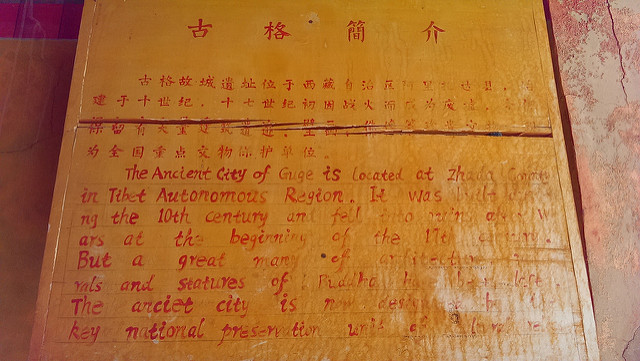 古格簡介
古格故城遺址位于西藏自治区阿里札达县,
建于十世纪,十七世纪初因战火而成为废墟,
保留有大量建筑遗迹,壁画
为全国重点文物保护单位。
The Ancient City of Guge is Located at Zhada County
in Tibet Autonomous Region. It was built
ng the 10th century and fell into ruin after W
ars at the beginning of the 17th century.
But a great many of arfitectu
rals and statures of Buddha have been left.
The anciet city is now
key national preservation unit of